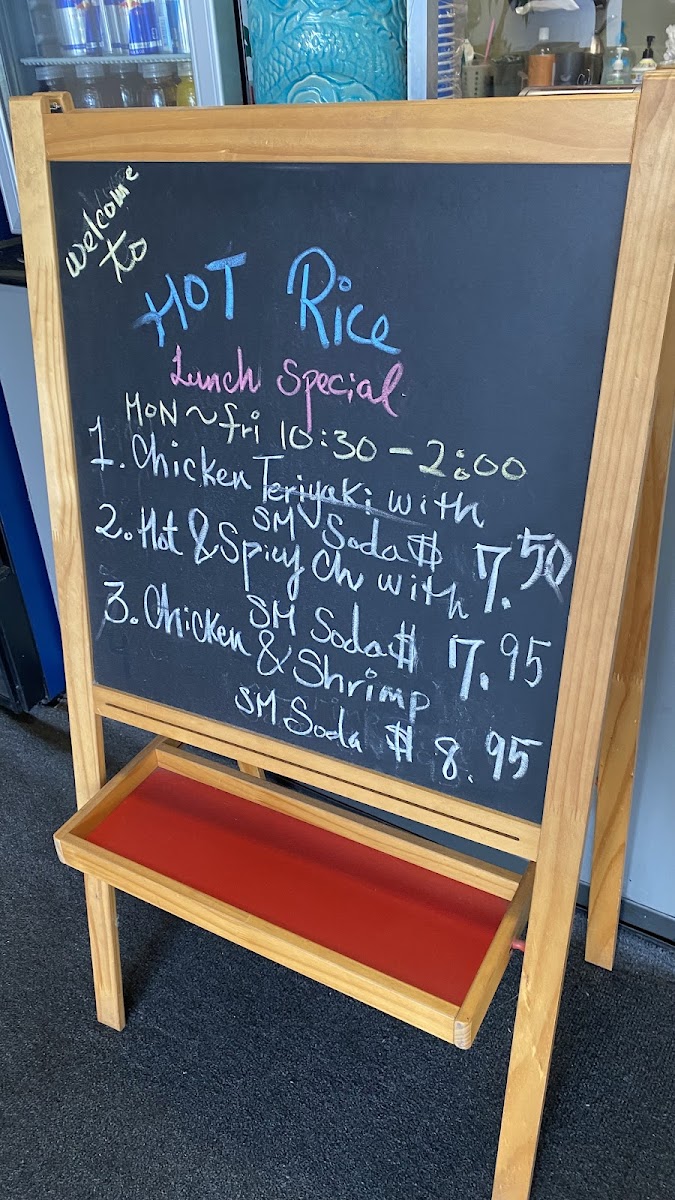 welcome
to
HOT Rice
Lunch Special
MON ~ fri 10:30 - 2:00
1. Chicken Teriyaki with
SM Soda $ 7.50
2. Hot & Spicy Ch with
SM Soda $ 7.95
3. Chicken & Shrimp
SM Soda $ 8.95